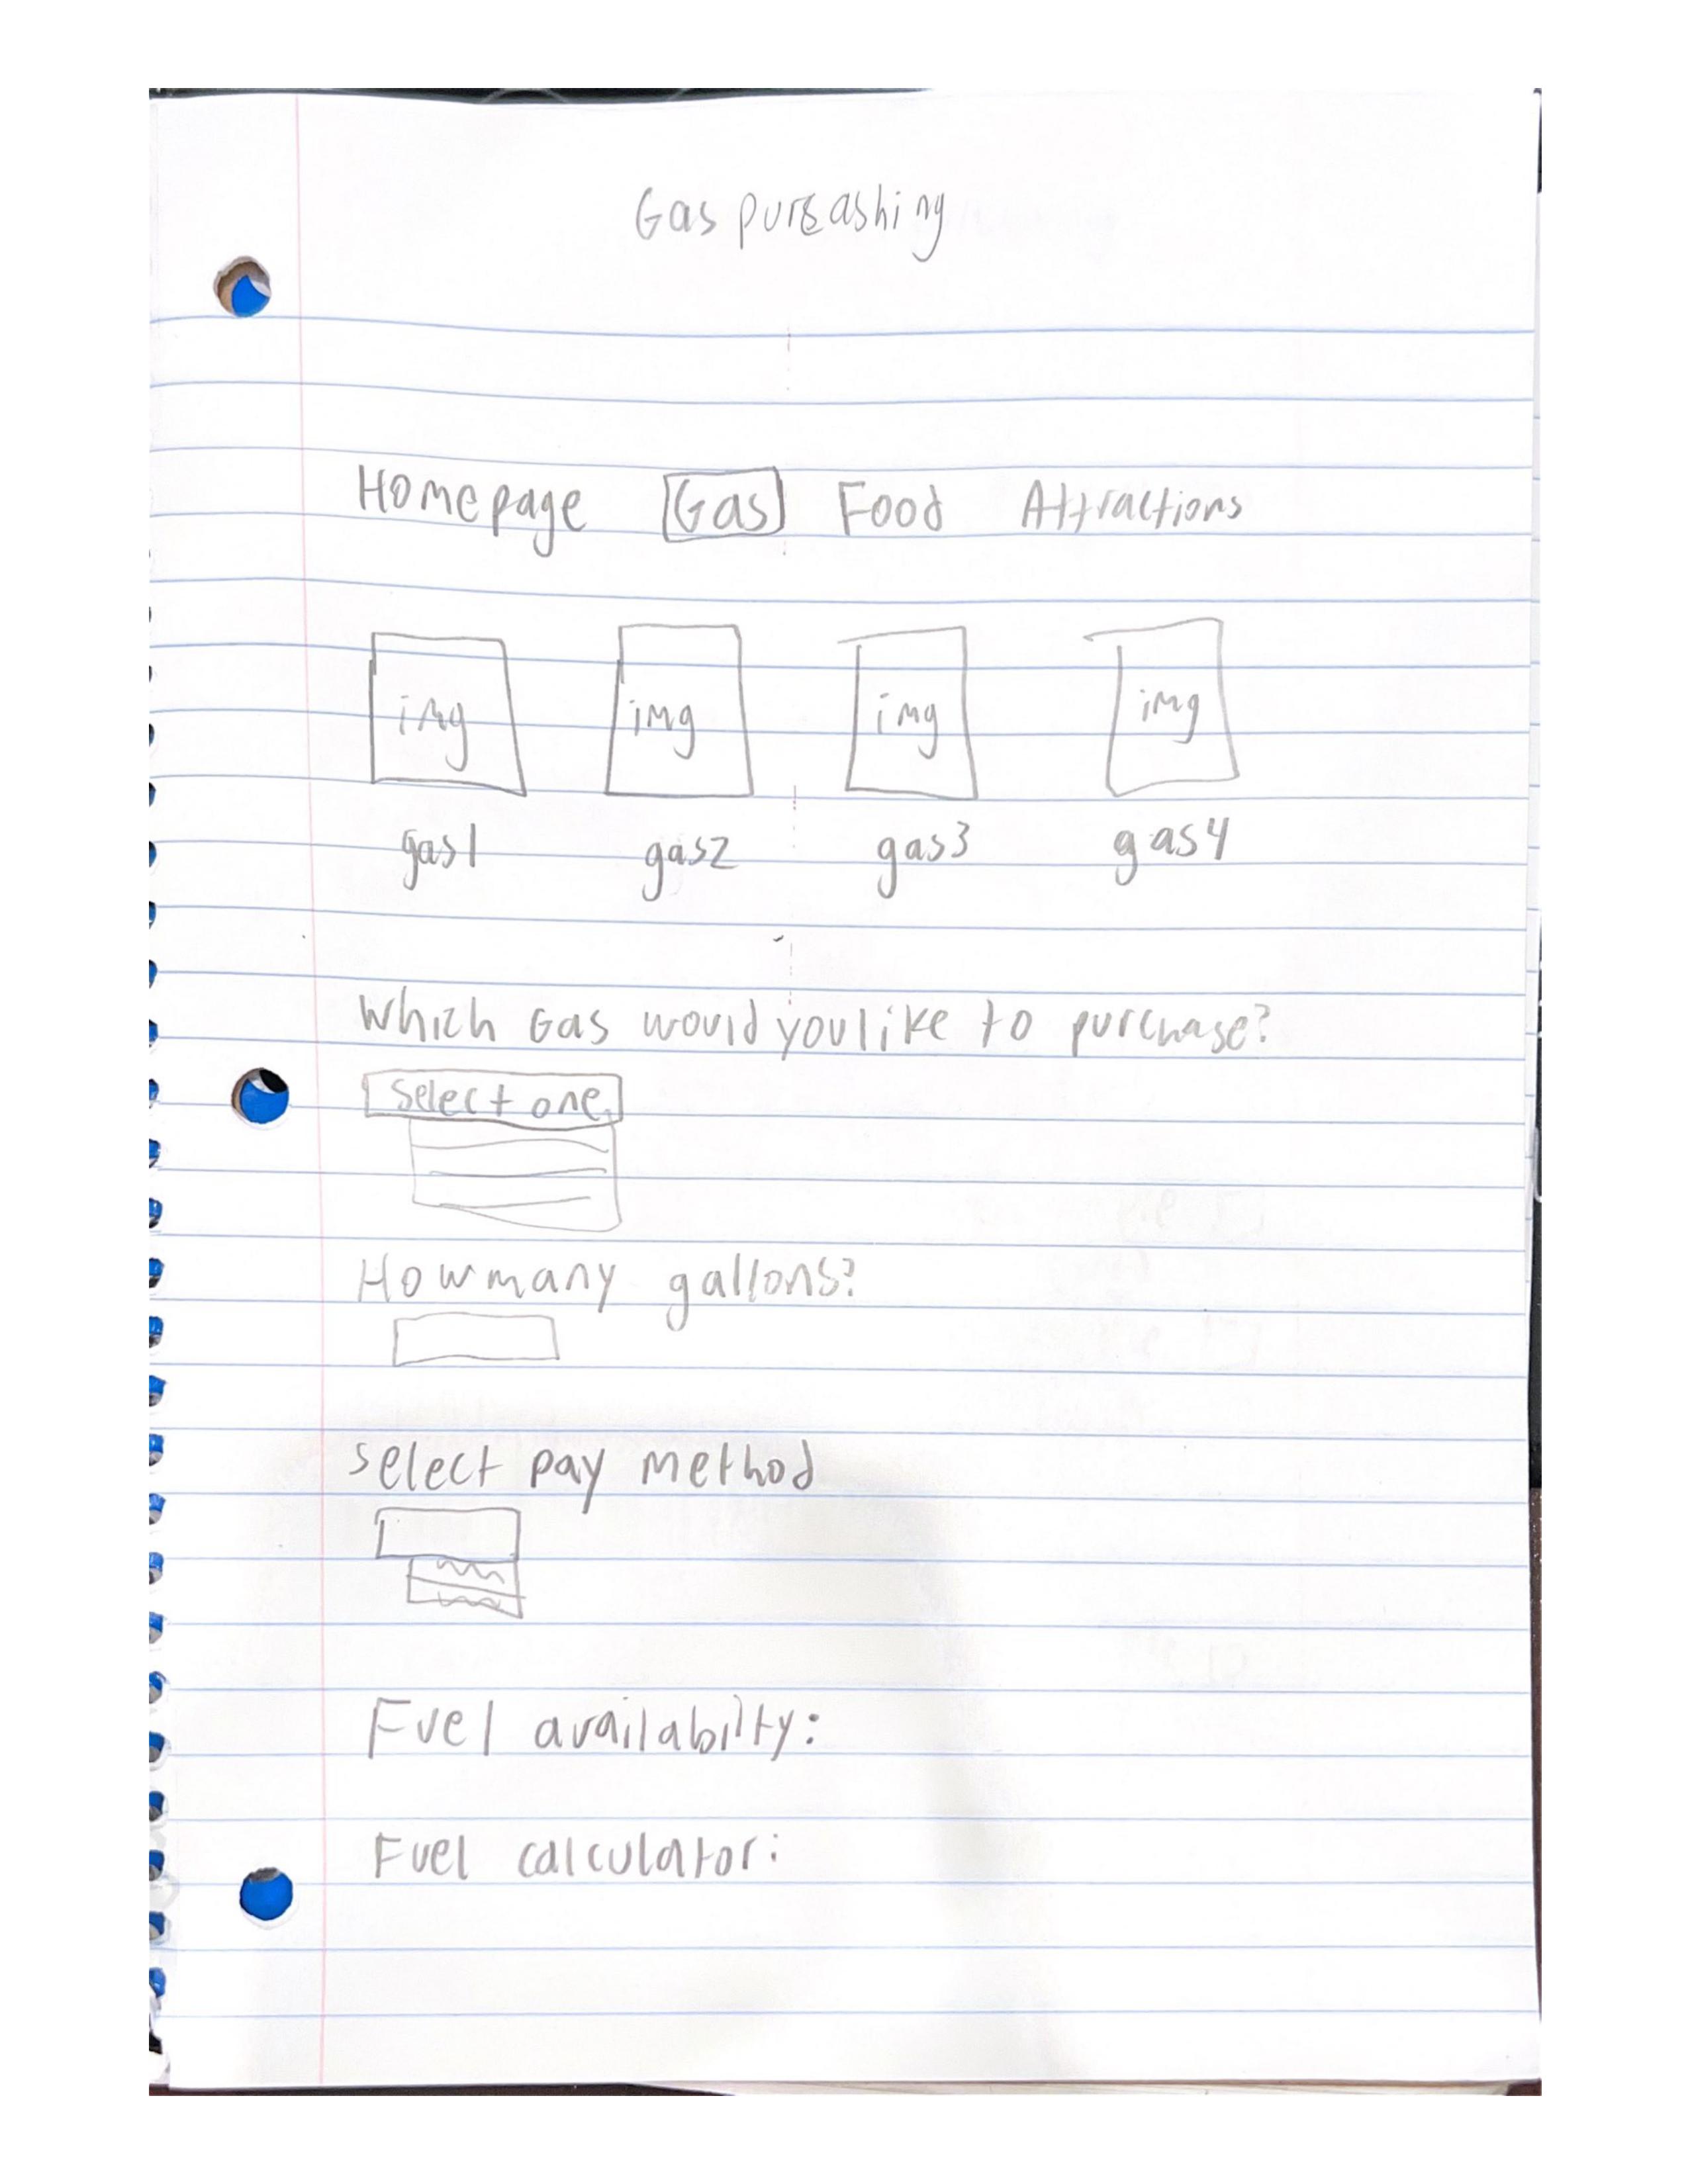 Gas purcashing
Homepage Gas Food Attractions
img img img img
gas1 gas2 gas3 gas4
Which Gas would you like to purchase?
Select one
How many gallons?
select pay method
Fuel availabilty:
Fuel calculator: